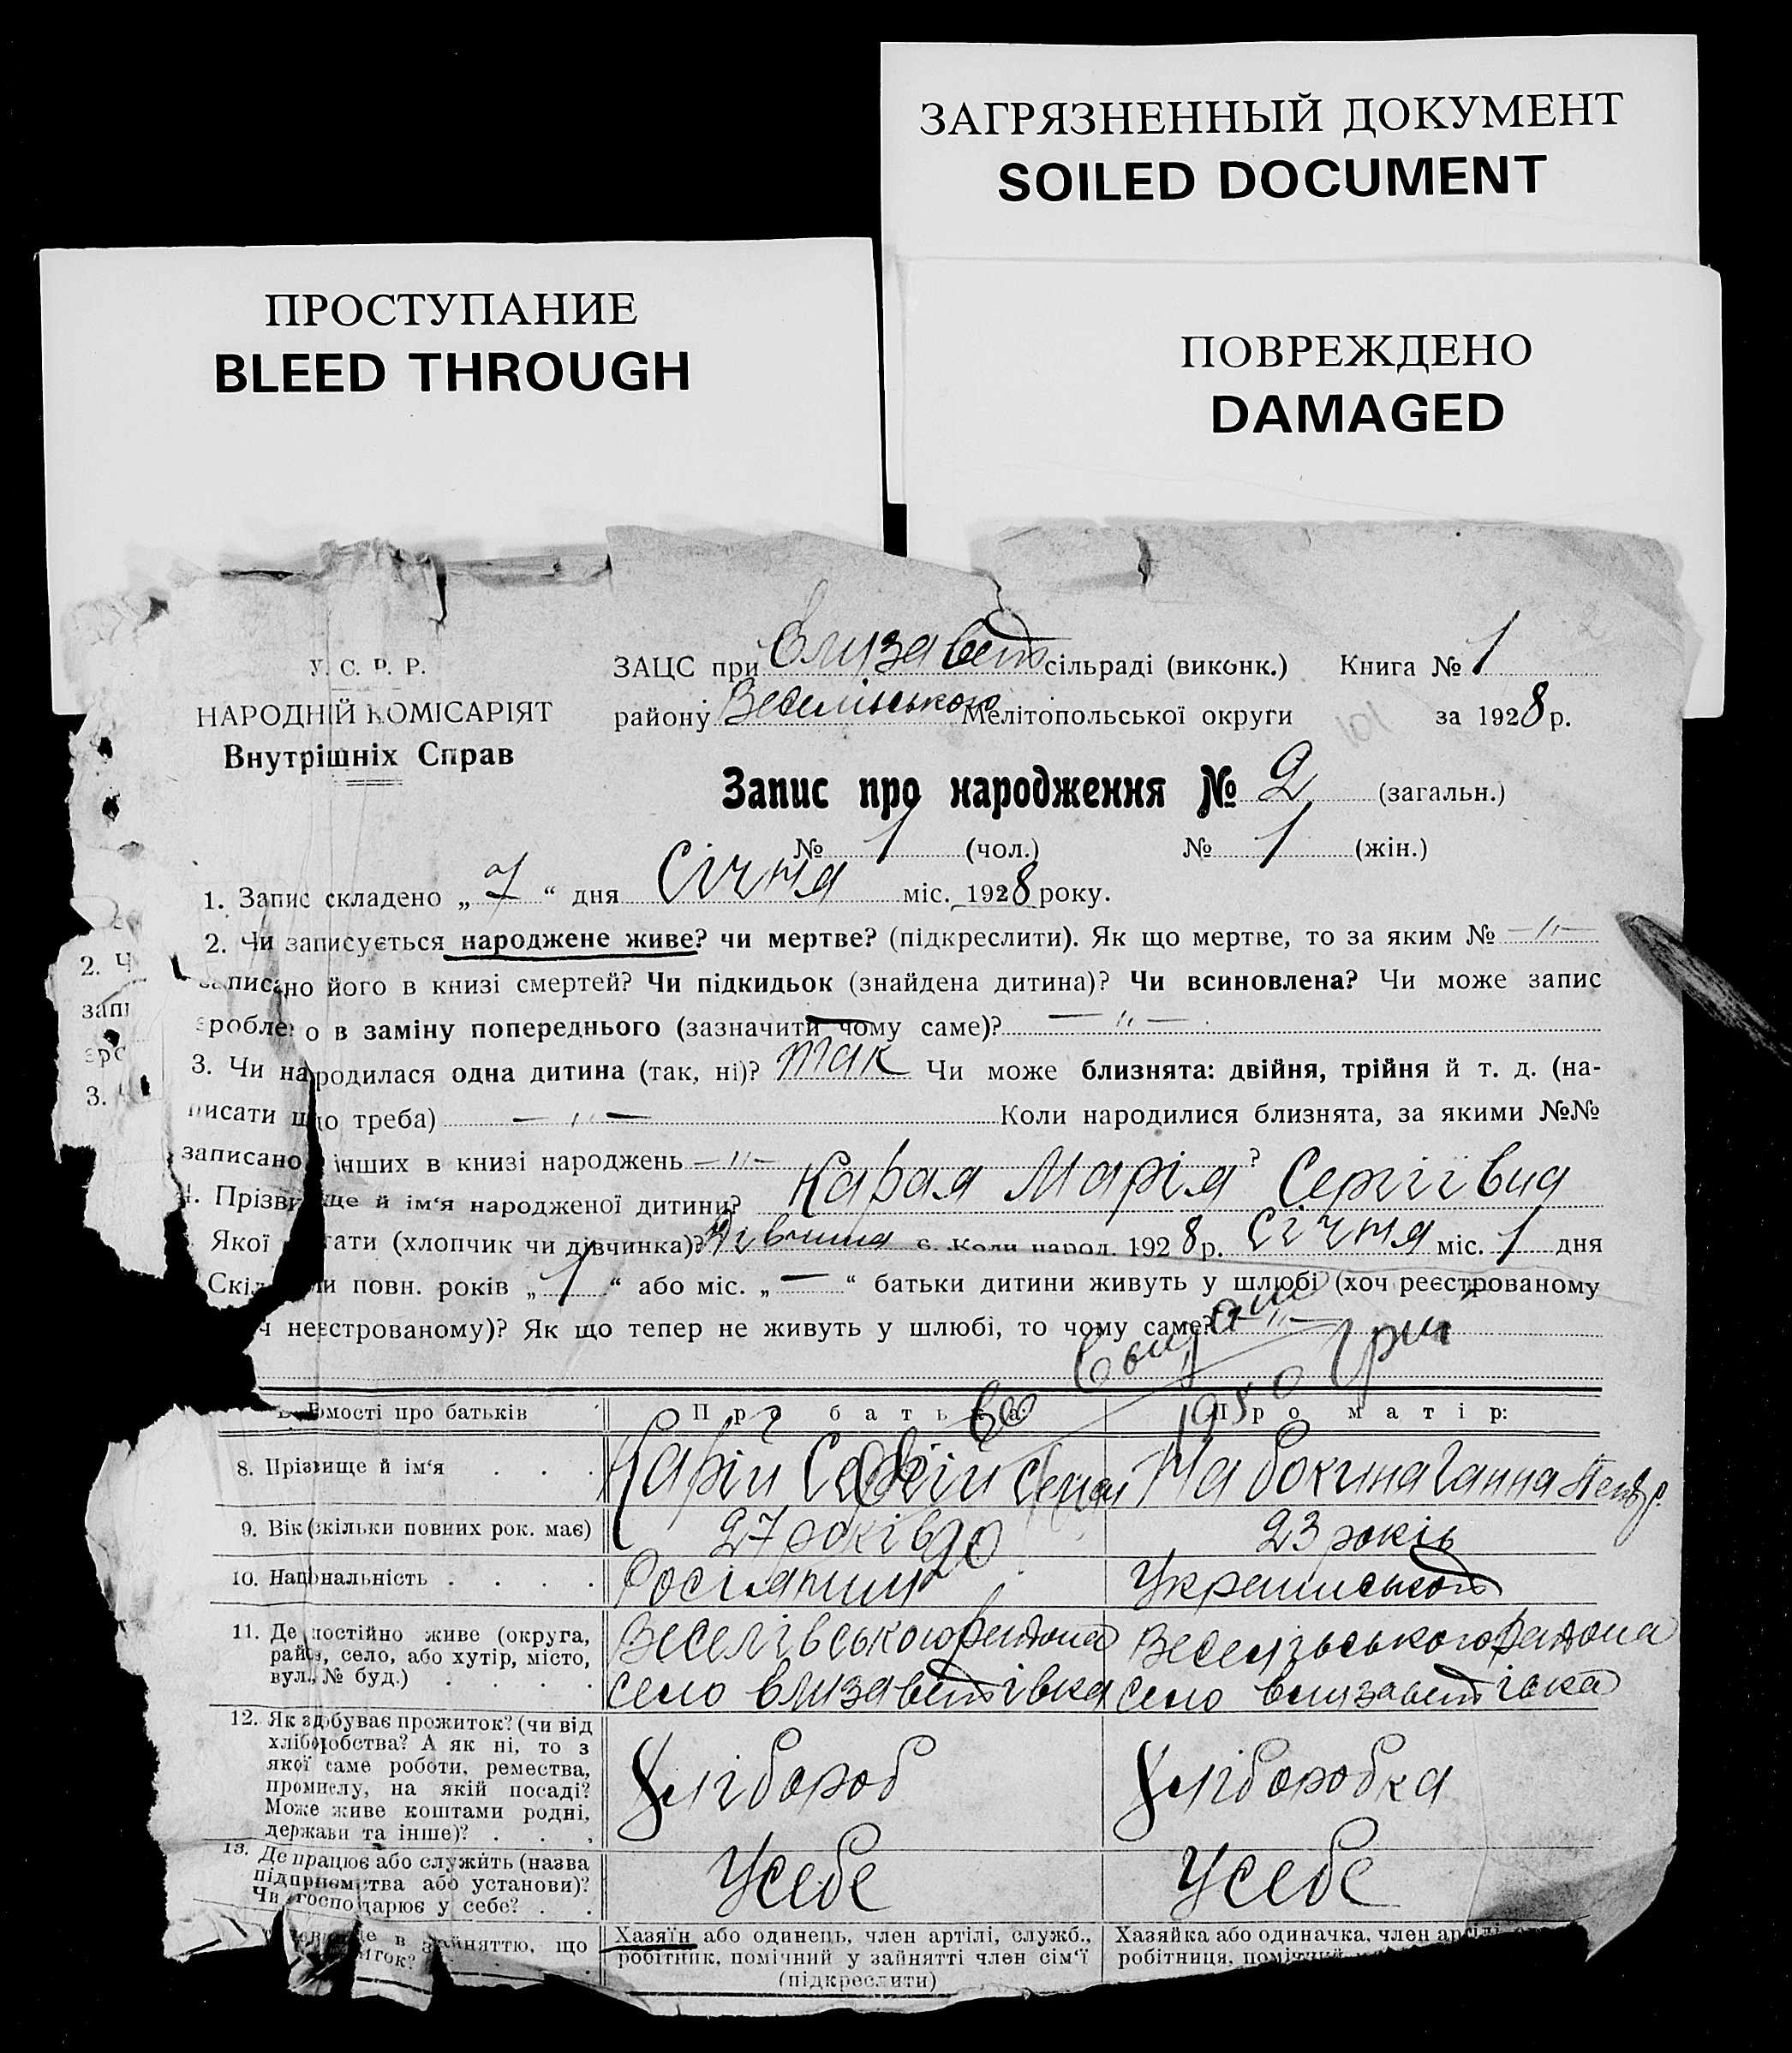 ЗАГРЯЗНЕННЫЙ ДОКУМЕНТ
SOILED DOCUMENT
ПРОСТУПАНИЕ
BLEED THROUGH
ПОВРЕЖДЕНО
DAMAGED
У. С. Р. Р.
НАРОДНІЙ КОМІСАРІЯТ
Внутрішніх Справ
ЗАЦС при Єлизавет сільраді (виконк.) Книга № 1
району Веселівського Мелітопольської округи за 1928 р.
Запис про народження № 2 (загальн.)
№ 1 (чол.) № 1 (жін.)
1. Запис складено „ 7 “ дня Січня міс. 1928 року.
2. Чи записується народжене живе? чи мертве? (підкреслити). Як що мертве, то за яким № — 〃 —
записано його в книзі смертей? Чи підкидьок (знайдена дитина)? Чи всиновлена? Чи може запис
зроблено в заміну попереднього (зазначити чому саме)? — 〃 —
3. Чи народилася одна дитина (так, ні)? так Чи може близнята: двійня, трійня й т. д. (на-
писати що треба) — 〃 — Коли народилися близнята, за якими №№
записано інших в книзі народжень — 〃 — ?
4. Прізвище й ім'я народженої дитини? Карая Марія Сергіівна
Якої стати (хлопчик чи дівчинка)? Дівчина 6. Коли народ. 1928 р. Січня міс. 1 дня
Скільки повн. років „ 1 “ або міс. „ — “ батьки дитини живуть у шлюбі (хоч реєстрованому
ч неєстрованому)? Як що тепер не живуть у шлюбі, то чому саме? — 〃 —
Відомості про батьків Про батька: Про матір:
8. Прізвище й ім'я Карій Сергій Семен Набокина Ганна Петр.
9. Вік (скільки повних рок. має) 27 років 23 років
10. Національність Росіянин Українського
11. Де постійно живе (округа, район, село, або хутір, місто, вул., № буд.)
Веселівського района Веселівського района
село Єлизаветівка село Єлизаветівка
12. Як здобуває прожиток? (чи від
хліборобства? А як ні, то з
якої саме роботи, ремества,
промислу, на якій посаді?
Може живе коштами родні,
держави та інше)?
Хлібороб Хліборобка
13. Де працює або служить (назва
підприємства або установи)?
Чи господарює у себе?
У себе У себе
в зайняттю, що
Хазяїн або одинець, член артілі, служб., Хазяйка або одиначка, член артілі
робітник, помічний у зайнятті член сім'ї робітниця,
(підкреслити)